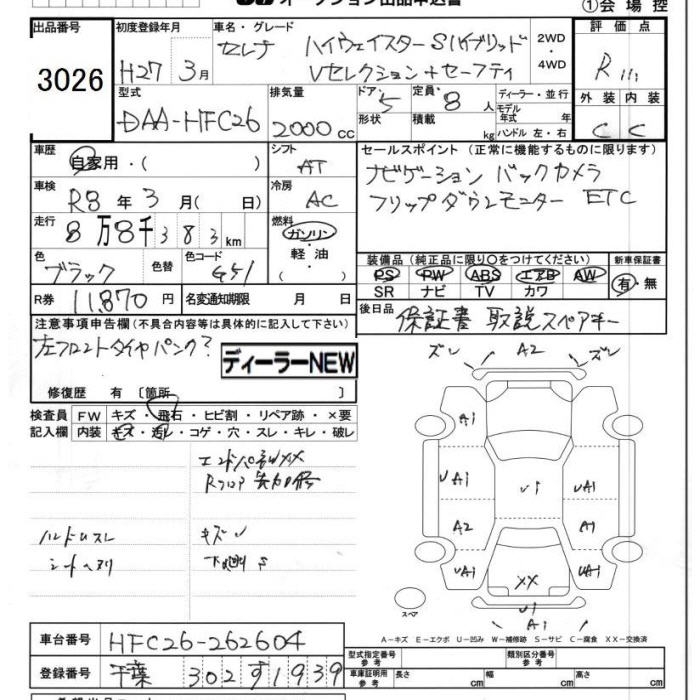 オークション出品申込書
①会場控
出品番号
3026
初度登録年月
H27 3月
車名・グレード
セレナ ハイウェイスターS ハイブリッド
Vセレクション+セーフティ
2WD
・
4WD
評価点
R
外装 内装
C C
型式
DAA-HFC26
排気量
2000cc
ドア・形状
5
定員・積載
8人
kg
ディーラー・並行
モデル年式 年
ハンドル 左・右
車歴
自家用・( )
シフト
AT
車検
R8年3月( 日)
冷房
AC
走行
8万8千383km
燃料
ガソリン
・
軽油
・
( )
色
ブラック
色替
色コード
G51
R券 11,870円
名変通知期限 月 日
セールスポイント(正常に機能するものに限ります)
ナビゲーション バックカメラ
フリップダウンモニター ETC
装備品(純正品に限り○をつけてください)
PS PW ABS エアB AW
SR ナビ TV カワ
新車保証書
有・無
後日品
保証書 取説 スペアキー
注意事項申告欄(不具合内容等は具体的に記入して下さい)
左フロントタイヤパンク?
ディーラーNEW
修復歴 有〔箇所 〕
検査員
記入欄
FW キズ・飛石・ヒビ割・リペア跡・×要
内装 キズ・汚レ・コゲ・穴・スレ・キレ・破レ
エンドパネルXX
Rフロア
ハンドルスレ
キズレ
ズレ A2 ズレ
A1
UA1 U1 UA1
A2 A1
UA1 XX UA1
U1
A1
スペア
A-キズ E-エクボ U-凹み W-補修跡 S-サビ C-腐食 XX-交換済
車台番号 HFC26-262604
登録番号 千葉 302 す 1939
型式指定番号
参考
類別区分番号
参考
車庫証明用
参考
長さ cm 幅 cm 高さ cm